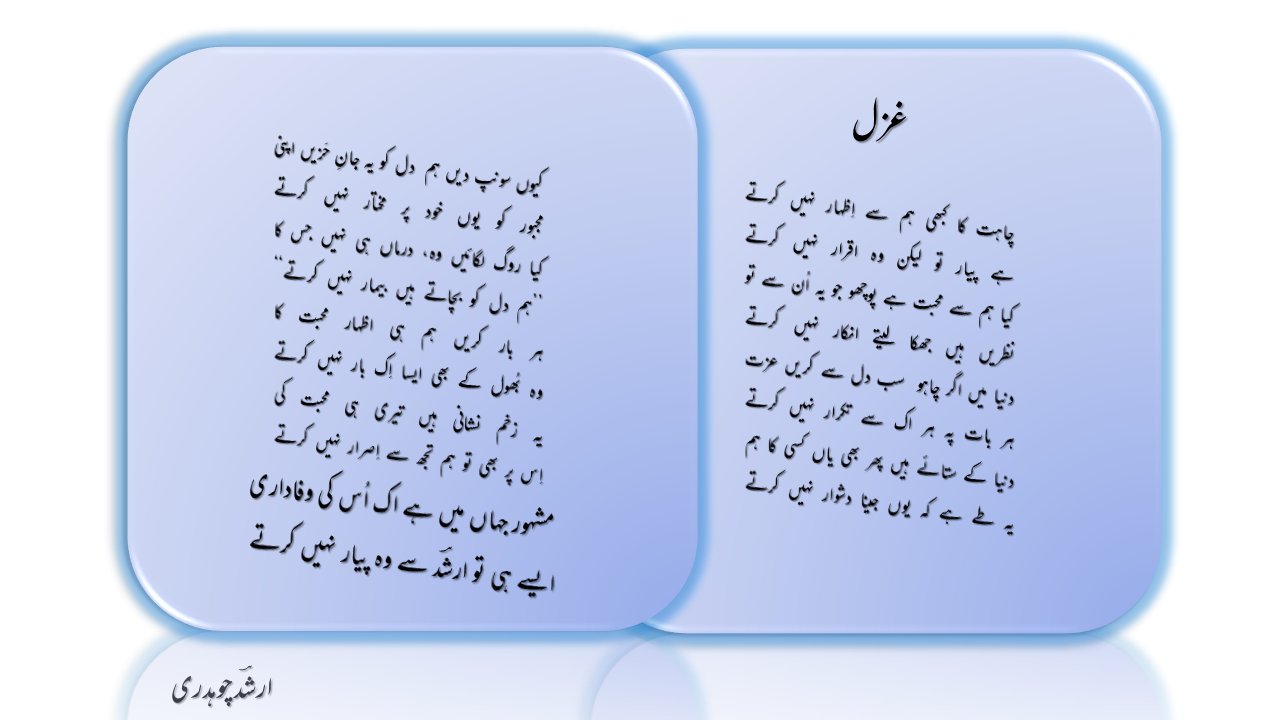 غزل
چاہت کا کبھی ہم سے اِظہار نہیں کرتے
ہے پیار تو لیکن وہ اقرار نہیں کرتے
کیا ہم سے محبت ہے پوچھو جو یہ اُن سے تو
نظریں ہیں جھکا لیتے انکار نہیں کرتے
دنیا میں اگر چاہو سب دل سے کریں عزت
ہر بات پہ ہر اک سے تکرار نہیں کرتے
دنیا کے ستائے ہیں پھر بھی یاں کسی کا ہم
یہ طے ہے کہ یوں جینا دشوار نہیں کرتے
کیوں سونپ دیں ہم دل کو یہ جانِ حَزیں اپنی
مجبور کو یوں خود پر مختار نہیں کرتے
کیا روگ لگائیں وہ، درماں ہی نہیں جس کا
”ہم دل کو بچاتے ہیں بیمار نہیں کرتے“
ہر بار کریں ہم ہی اظہار محبت کا
وہ بُھول کے بھی ایسا اِک بار نہیں کرتے
یہ زخم نشانی ہیں تیری ہی محبت کی
اِس پر بھی تو ہم تجھ سے اِصرار نہیں کرتے
مشہور جہاں میں ہے اک اُس کی وفاداری
ایسے ہی تو ارشدؔ سے وہ پیار نہیں کرتے
ارشدؔ چوہدری